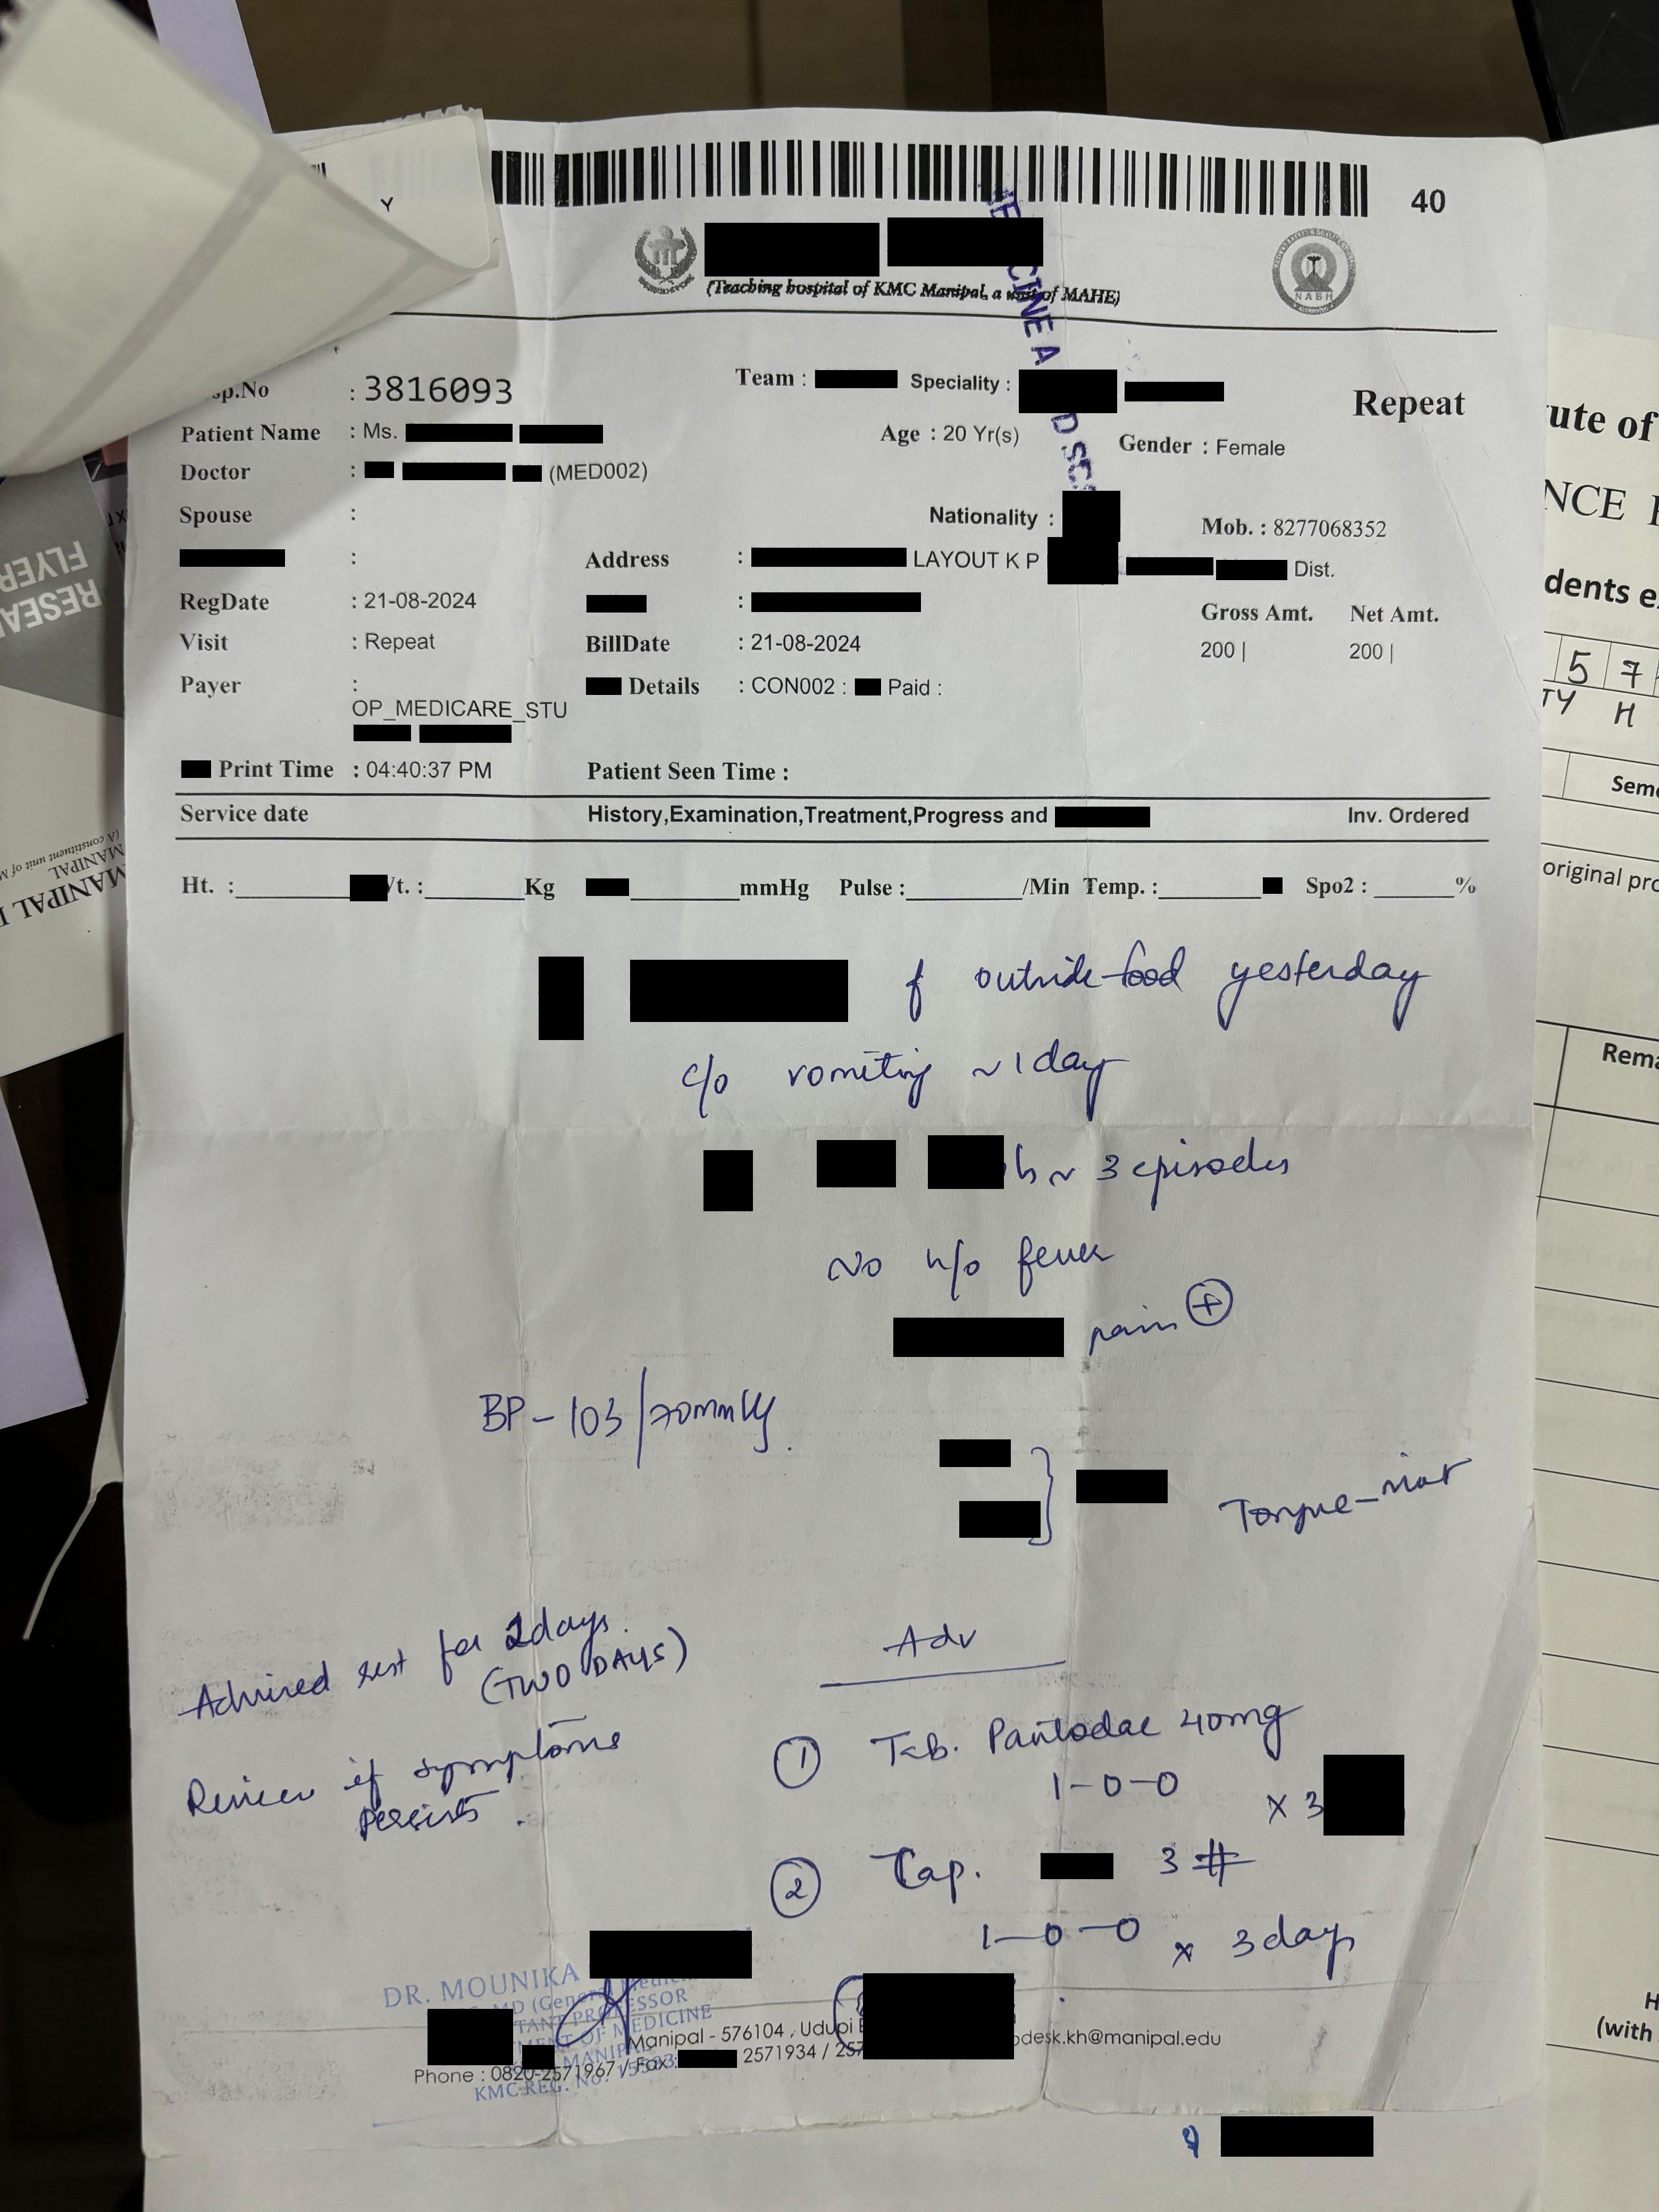 40
(Teaching hospital of KMC Manipal, a unit of MAHE)
NABH
sp.No : 3816093 Team : Speciality : Repeat
Patient Name : Ms. Age : 20 Yr(s) Gender : Female
Doctor : (MED002)
Spouse : Nationality : Mob. : 8277068352
: Address : LAYOUT K P Dist.
RegDate : 21-08-2024 : Gross Amt. Net Amt.
Visit : Repeat BillDate : 21-08-2024 200 | 200 |
Payer : Details : CON002 : Paid :
OP_MEDICARE_STU
Print Time : 04:40:37 PM Patient Seen Time :
Service date History,Examination,Treatment,Progress and Inv. Ordered
Ht. : t. : Kg mmHg Pulse : /Min Temp. : Spo2 : %
of outside food yesterday
c/o vomiting ~1 day
~ 3 episodes
No h/o fever
pain +
BP - 103/70mmHg
Tongue - moist
Advised rest for 2days.
(TWO DAYS)
Review if symptoms
persists.
Adv
1 Tab. Pantodac 40mg
1-0-0 x 3
2 Cap. 3 #
1-0-0 x 3 day
DR. MOUNIKA
MD (General Medici
TANT PROFESSOR
MENT OF MEDICINE
MANIPAL
KMC REG. No.
Manipal - 576104 , Udupi desk.kh@manipal.edu
Phone : 0820-2571967 / Fax : 2571934 / 257
RESEA
FLYER
MANIPAL
(A constituent unit of M
ute of
NCE
dents e
5 7
TY H
Seme
original pro
Rema
H
(with